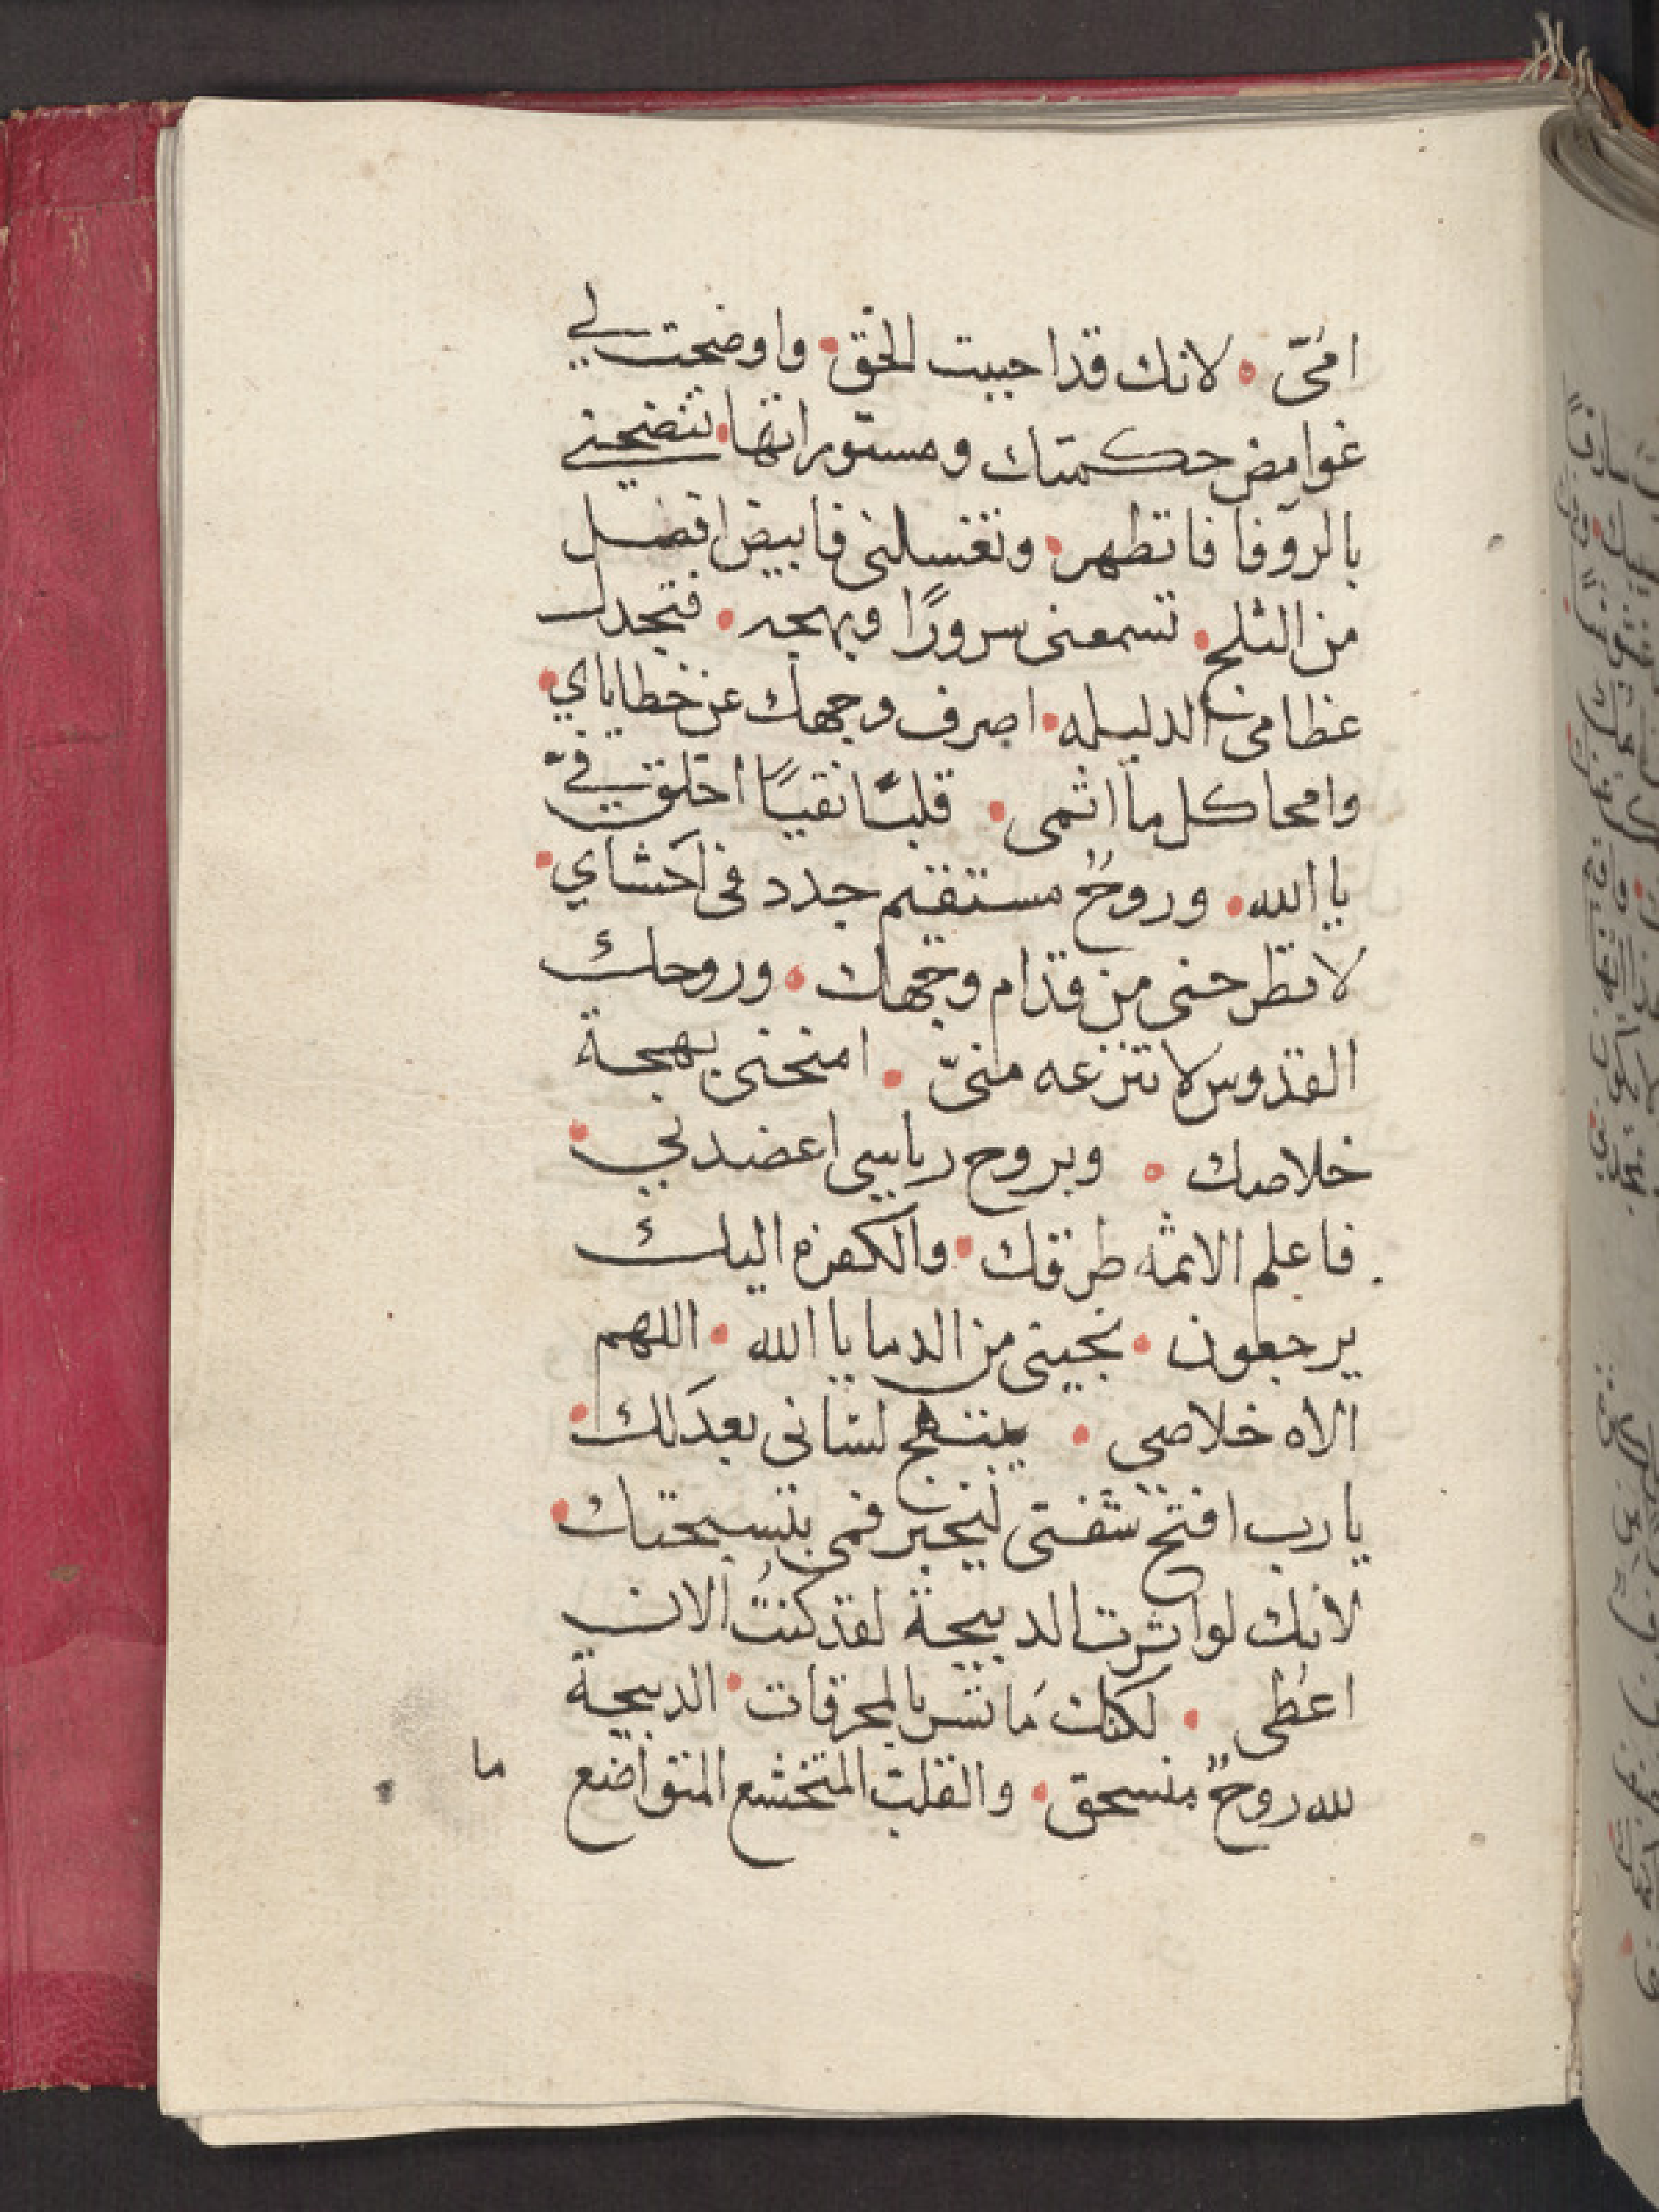 امّى • لانك قد احببت الحق • واوضحت لي
غوامض حكمتك ومستوراتها • تنضحني
بالزوفا فاتطهر • وتغسلنى فابيض افضل
من الثلج • تسمعنى سرورًا وبهجه • فتجدل
عظامى الدليله • اصرف وجهك عن خطاياي •
وامحا كل مااثمى • قلبًا نقيًا اخلق فيّ
يا الله • وروحٌ مستقيم جدد فى احشاي •
لا تطرحنى من قدام وجهك • وروحك
القدوس لا تنزعه منىّ • امنحنى بهجة
خلاصك • وبروح رياسى اعضدني •
فاعلم الاثمه طرقك • والكفره اليك
يرجعون • نجينى من الدما يا الله • اللهم
الاه خلاصى • يبتهج لسانى بعدلك •
يا رب افتح شفتى ليخبر فمى بتسبحتك •
لانك لو اثرت الدبيحة لقد كنتُ الان
اعطى • لكنك مَا تسر بالمحرقات • الدبيحة
لله روحٌ منسحق • والقلب المتخشع المتواضع
ما